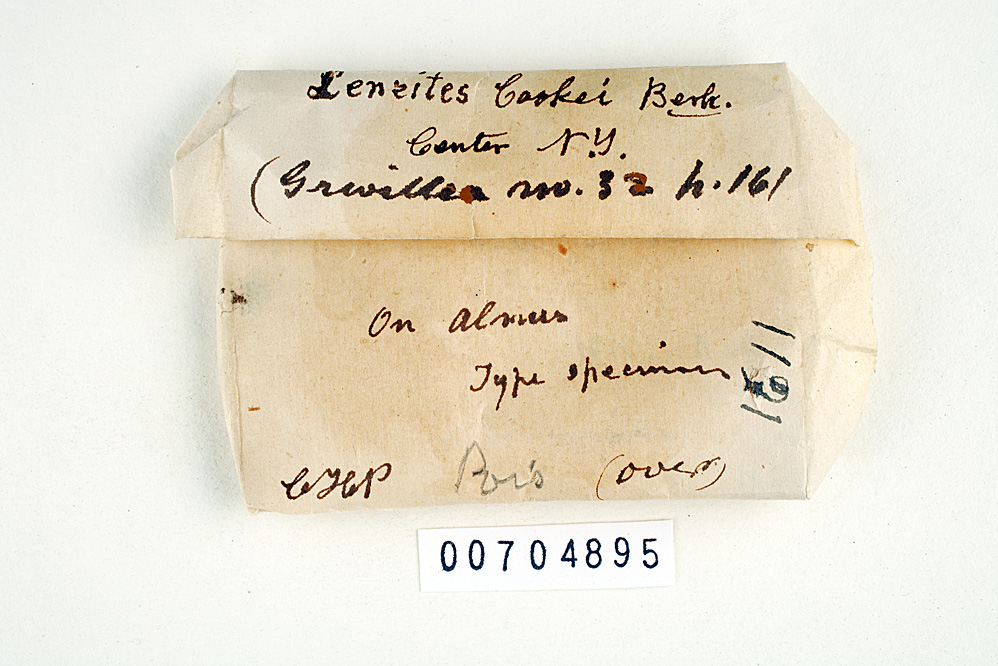 Lenzites Cookei Berk.
Center N.Y.
(Grevillea no. 32 p. 161
On Alnus
Type specimen
CHP
(over)
00704895